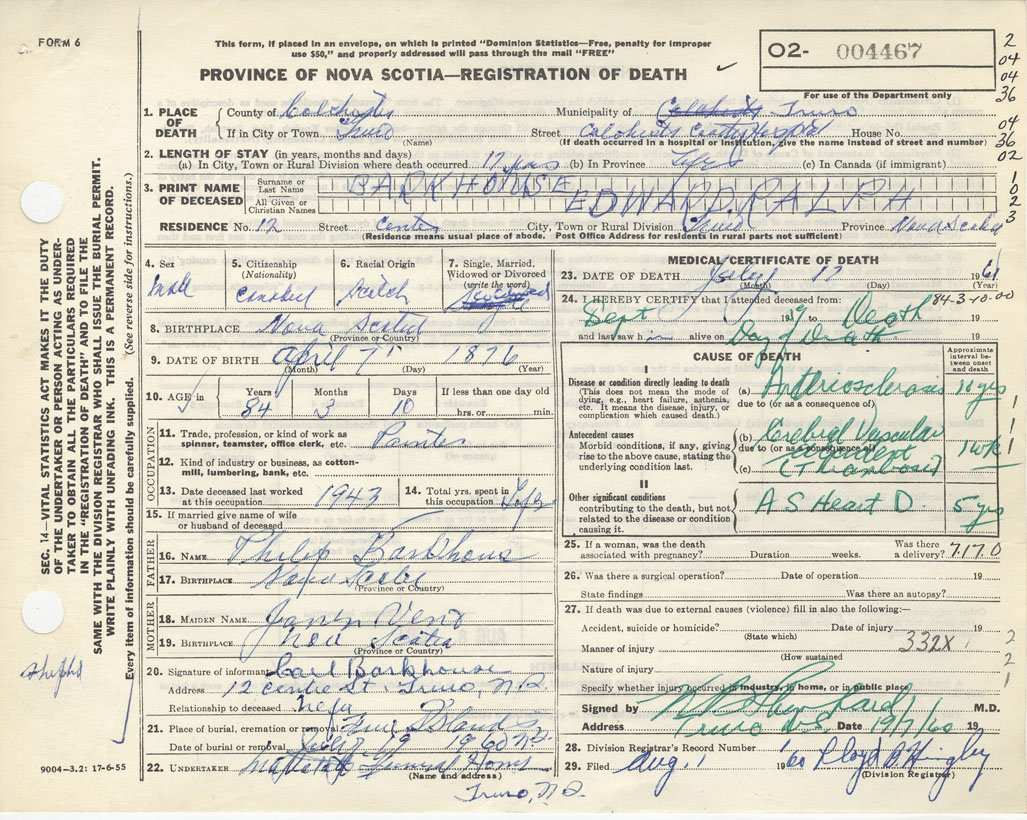 FORM 6
This form, if placed in an envelope, on which is printed "Dominion Statistics—Free, penalty for improper
use $50," and properly addressed will pass through the mail "FREE"
PROVINCE OF NOVA SCOTIA—REGISTRATION OF DEATH
O2- 004467
For use of the Department only
2
04
04
36
04
36
02
1
0
2
3
1. PLACE OF DEATH
County of Colchester Municipality of Truro
If in City or Town Truro Street Colchester County Hospital House No.
(Name) (If death occurred in a hospital or institution, give the name instead of street and number)
2. LENGTH OF STAY (in years, months and days)
(a) In City, Town or Rural Division where death occurred 17 yrs (b) In Province Life (c) In Canada (if immigrant)
3. PRINT NAME OF DECEASED
Surname or Last Name BARKHOUSE
All Given or Christian Names EDWARD RALPH
RESIDENCE No. 12 Street Center City, Town or Rural Division Truro Province Nova Scotia
(Residence means usual place of abode. Post Office Address for residents in rural parts not sufficient)
4. Sex Male
5. Citizenship (Nationality)
6. Racial Origin
7. Single, Married, Widowed or Divorced (write the word)
8. BIRTHPLACE Nova Scotia
(Province or Country)
9. DATE OF BIRTH April 7 1876
(Month) (Day) (Year)
10. AGE in Years 84 Months 3 Days 10 If less than one day old hrs. or min.
OCCUPATION
11. Trade, profession, or kind of work as spinner, teamster, office clerk, etc.
12. Kind of industry or business, as cotton-mill, farming, bank, etc.
13. Date deceased last worked at this occupation 1943
14. Total yrs. spent in this occupation
15. If married give name of wife or husband of deceased
FATHER
16. NAME Philip Barkhouse
17. BIRTHPLACE Nova Scotia
(Province or Country)
MOTHER
18. MAIDEN NAME
19. BIRTHPLACE Nova Scotia
(Province or Country)
20. Signature of informant Carl Barkhouse
Address 12 Centre St. Truro, N.S.
Relationship to deceased
21. Place of burial, cremation or removal
Date of burial or removal July 19 1960
22. UNDERTAKER Funeral Home
(Name and address)
Truro, N.S.
MEDICAL CERTIFICATE OF DEATH
23. DATE OF DEATH July 17 19
(Month) (Day)
24. I HEREBY CERTIFY that I attended deceased from: 84-3-10-00
Sept 19 to Death 19
and last saw him alive on Day of Death 19
CAUSE OF DEATH
Approximate interval between onset and death
I
Disease or condition directly leading to death
(This does not mean the mode of dying, e.g., heart failure, asthenia, etc. It means the disease, injury, or complication which caused death.)
(a) Arteriosclerosis 10 yrs
due to (or as a consequence of)
Antecedent causes
Morbid conditions, if any, giving rise to the above cause, stating the underlying condition last.
(b) Cerebral Vascular
due to (or as a consequence of)
accident 1 wk
(c) (Thrombosis)
II
Other significant conditions
contributing to the death, but not related to the disease or condition causing it.
A S Heart D 5 yrs
25. If a woman, was the death associated with pregnancy? Duration weeks. Was there a delivery? 717.0
26. Was there a surgical operation? Date of operation 19
State findings Was there an autopsy?
27. If death was due to external causes (violence) fill in also the following:—
Accident, suicide or homicide? Date of injury 19
(State which)
Manner of injury 332X
(How sustained)
Nature of injury
Specify whether injury occurred in industry, in home, or in public place
Signed by M.D.
Address Truro N.S. Date 19/7/60 19
28. Division Registrar's Record Number
29. Filed Aug. 1 1960 Lloyd
(Division Registrar)
2
2
1
SEC. 14—VITAL STATISTICS ACT MAKES IT THE DUTY
OF THE UNDERTAKER OR PERSON ACTING AS UNDER-
TAKER TO OBTAIN ALL THE PARTICULARS REQUIRED
IN THE "REGISTRATION OF DEATH" AND TO FILE THE
SAME WITH THE DIVISION REGISTRAR WHO SHALL ISSUE THE BURIAL PERMIT.
WRITE PLAINLY WITH UNFADING INK. THIS IS A PERMANENT RECORD.
Every item of information should be carefully supplied. (See reverse side for instructions.)
9004-3.2: 17-6-55